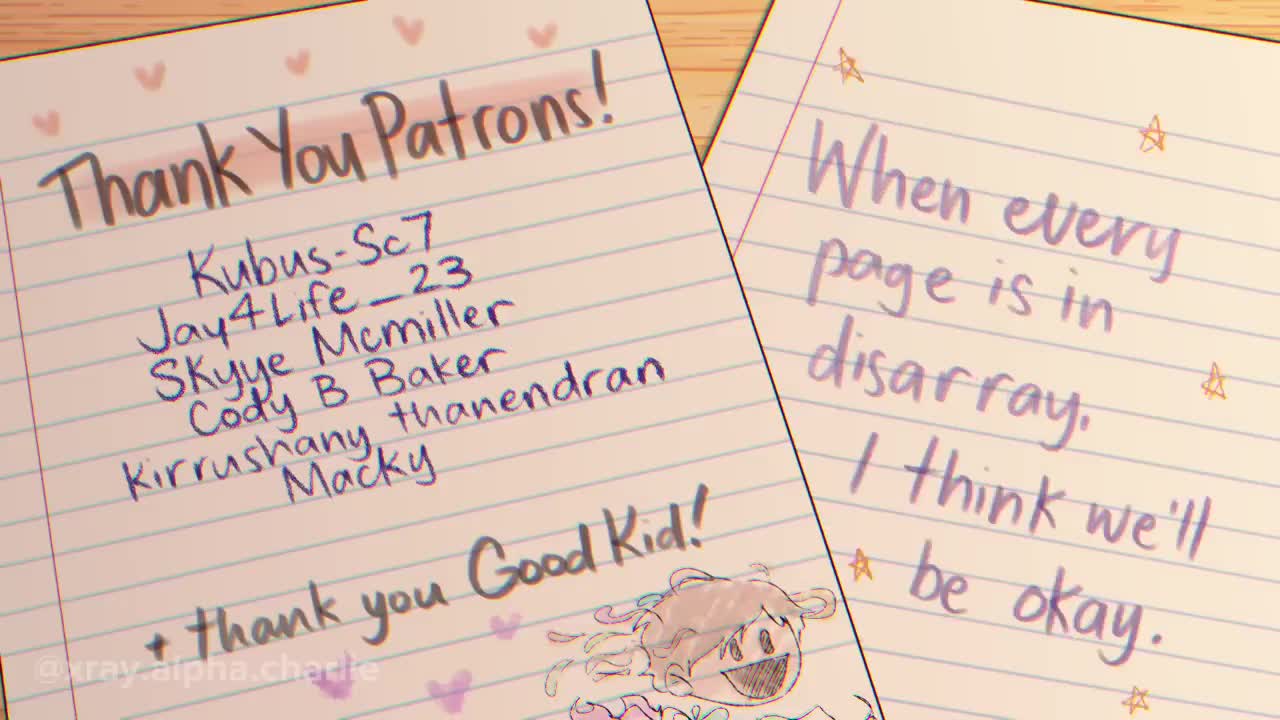 Thank You Patrons!
Kubus-Sc7
Jay4Life_23
Skyye Mcmiller
Cody B Baker
kirrushany thanendran
Macky
+ thank you Good Kid!
@xray.alpha.charlie
When every
page is in
disarray.
I think we'll
be okay.